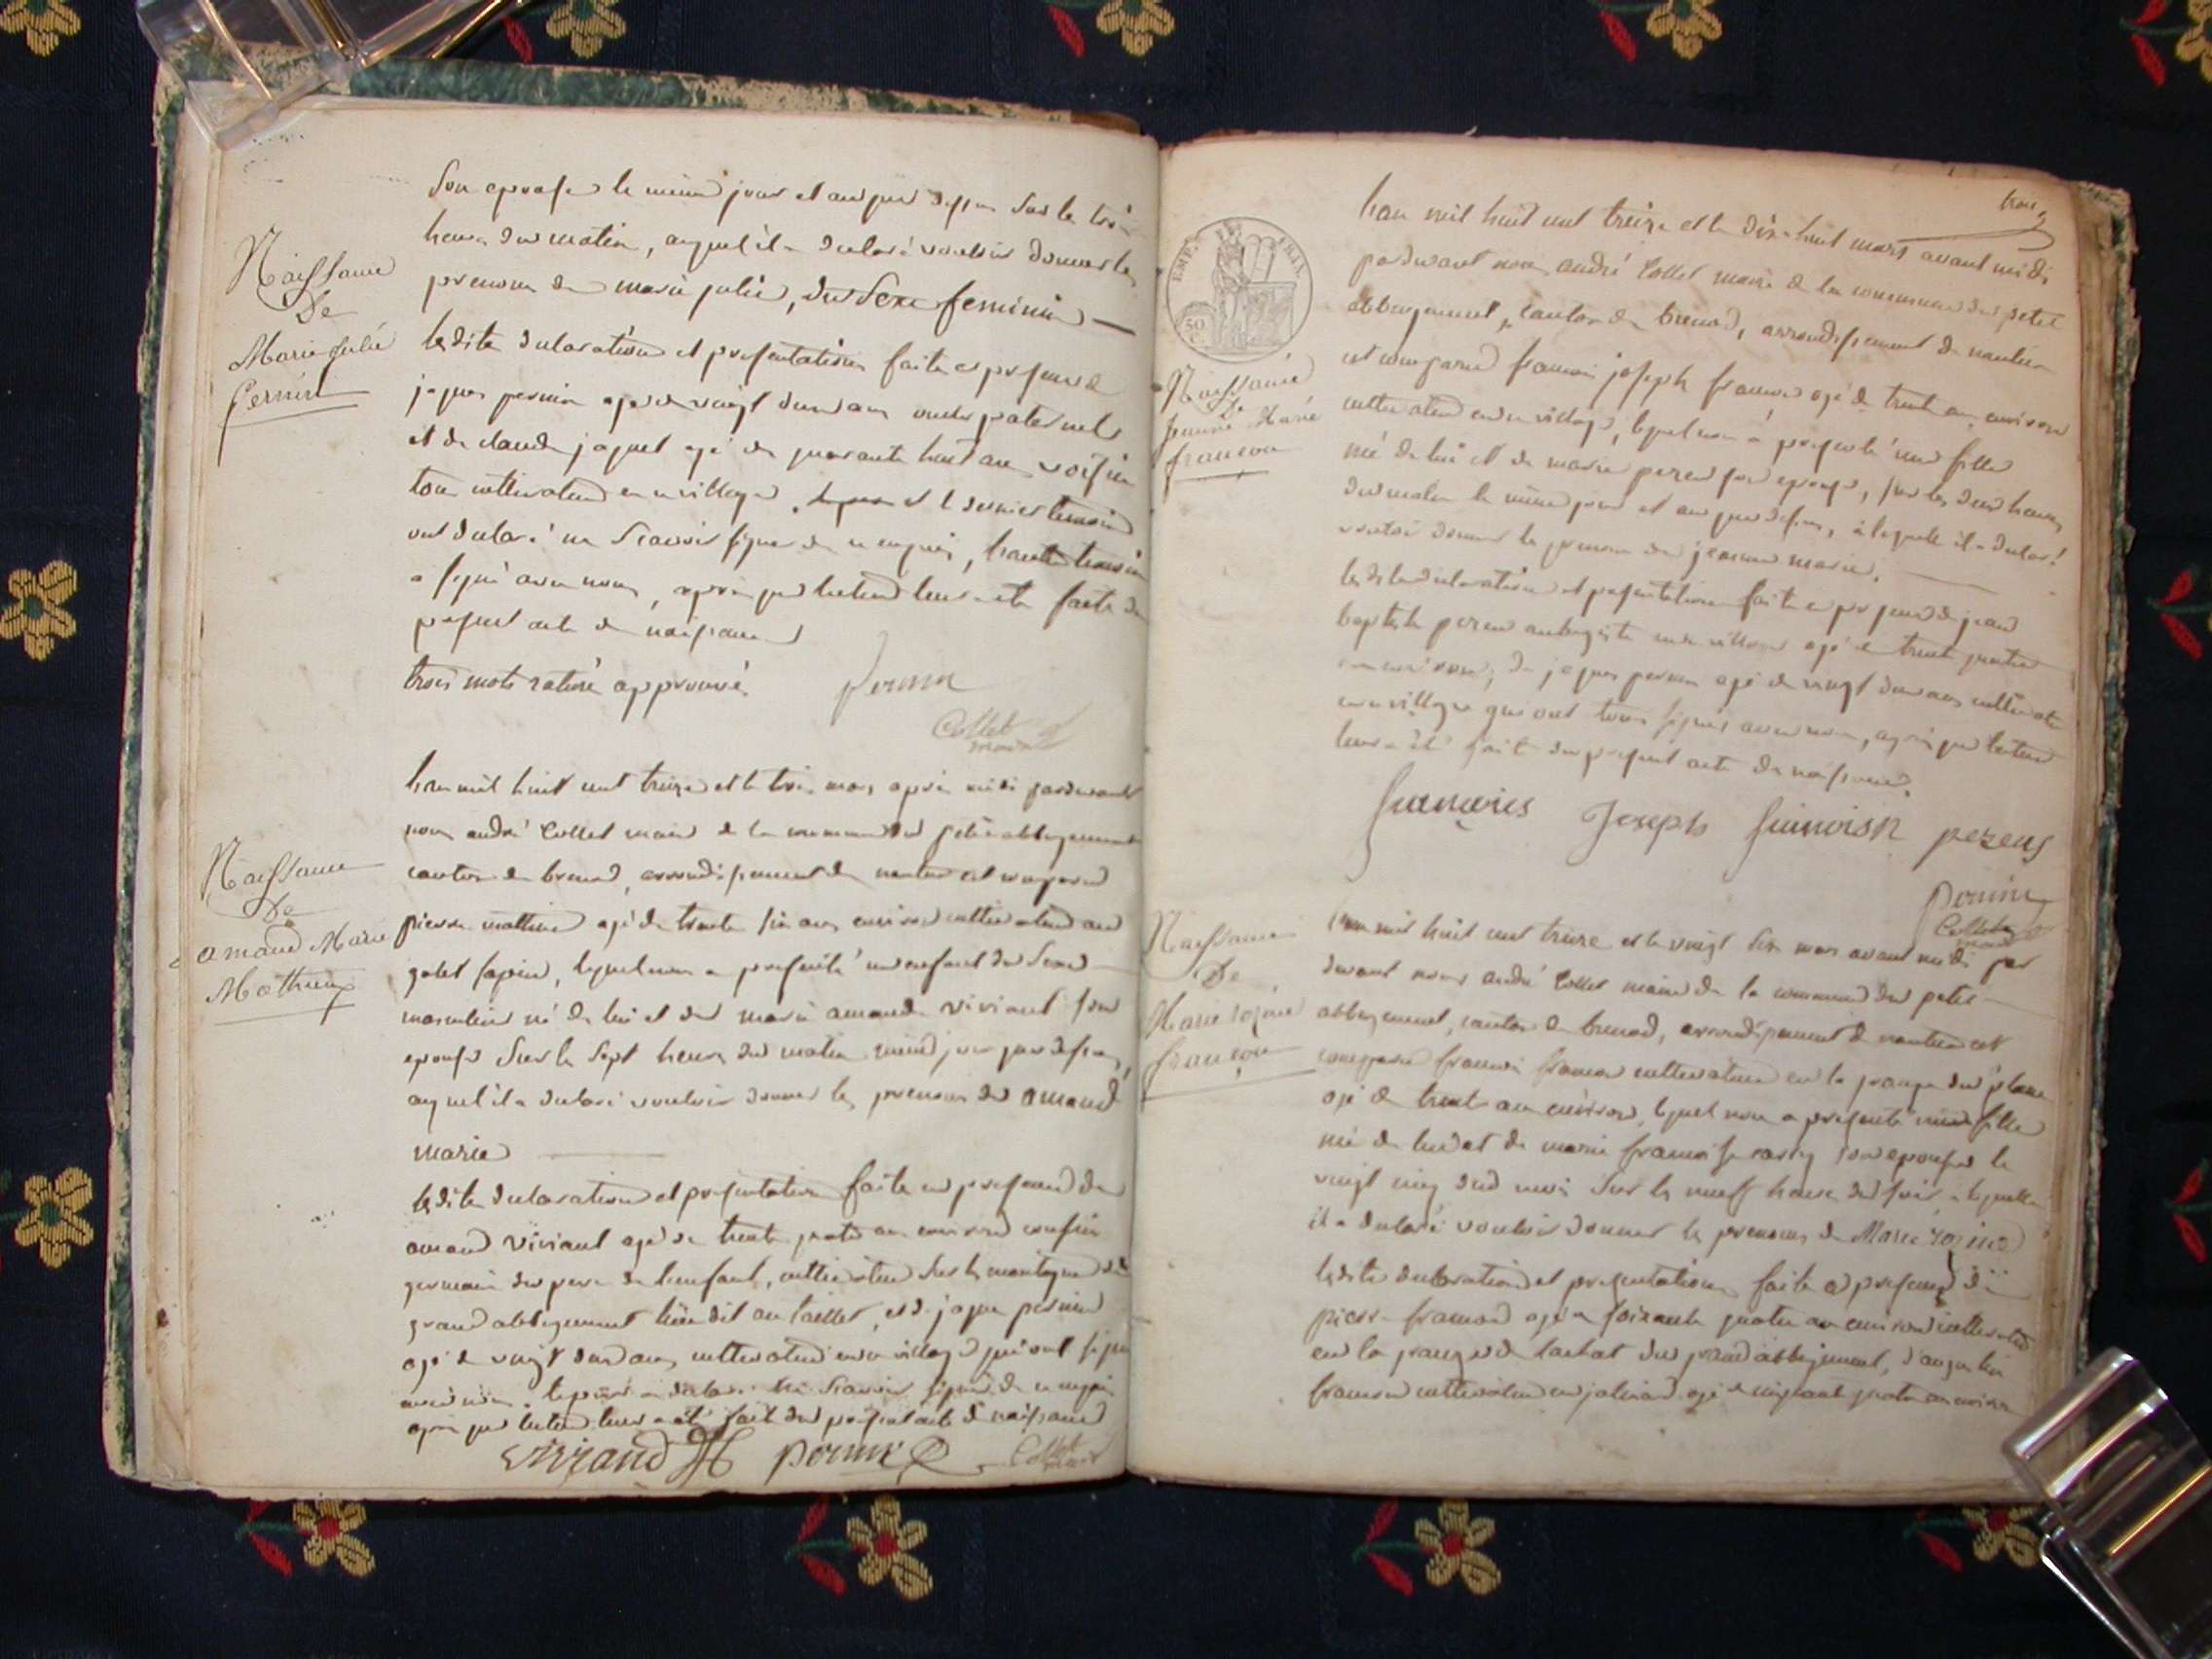 Son epouse le même jour et an que dessus sur les trois
heures du matin, auquel il a declaré vouloir donner les
prenoms de marie julie, du Sexe feminin
Naissance
De
Marie Julie
Pernin
lesdites declaration et presentation faite en presence de
jaques pernin agé de vingt deux ans oncle paternel
et de claude jaquet agé de quarante huit ans voisin
tous cultivateur en ce village, et le dernier temoin
ont declaré ne Scavoir signer de ce enquis, l'autre temoin
a signé avec nous, après que lecture leur a été faite du
present acte de naissance
trois mots raturé approuvé. pernin
Collet
maire
lan mil huit cent treize et le trois mars après midi pardevant
nous andré Collet maire de la commune du petit abbergement
canton de brenod, arrondissement de nantua est comparu
Naissance
De
amand Marie
Mathieu
pierre mathieu agé de trente six ans environ cultivateur au
golet sapin, lequel nous a presenté un enfant du Sexe
masculin né de lui et de marie amande viviant son
epouse Sur les Sept heures du matin même jour que dessus,
auquel il a declaré vouloir donner les prenoms de amand
marie
lesdites declaration et presentation faite en presence de
amand viviant agé de trente quatre ans environ cousin
germain du pere de l'enfant, cultivateur Sur la montagne du
grand abbergement lieu dit au taillet, et de jaques pernin
agé de vingt deux ans cultivateur en ce village qui ont signé
avec nous, le pere a declaré ne Scavoir signer de ce enquis
après que lecture leur a été fait du present acte de naissance
pernin Collet
maire
trois
lan mil huit cent treize et le dix huit mars avant midi
pardevant nous andré Collet maire de la commune du petit
abbergement, canton de brenod, arrondissement de nantua
Naissance
De
Jeanne Marie
françon
est comparu francois joseph françon agé de trente ans environ
cultivateur en ce village, lequel nous a presenté une fille
né de lui et de marie pezeu son epouse, sur les deux heures
du matin le même jour et an que dessus, à laquelle il a declaré
vouloir donner les prenoms de jeanne marie.
lesdites declaration et presentation faite en presence de jean
baptiste pezeu aubergiste en ce village agé de trente quatre
ans environ, de jaques pernin agé de vingt deux ans cultivateur
en ce village qui ont tous signés avec nous, après que lecture
leur a été fait du present acte de naissance.
Joseph pezeus
pernin
Collet
maire
Naissance
De
Marie rozine
françon
lan mil huit cent treize et le vingt Six mars avant midi par
devant nous andré Collet maire de la commune du petit
abbergement, canton de brenod, arrondissement de nantua est
comparu francois françon cultivateur en la grange du plane
agé de trente ans environ, lequel nous a presenté une fille
né de lui et de marie francoise carry son epouse le
vingt cinq dud mois Sur les neuf heures du soir, a laquelle
il a declaré vouloir donner les prenoms de Marie rozine
lesdites declaration et presentation faite en presence de
pierre françon agé de soixante quatre ans environ cultivateur
en la grange de lachat du grand abbergement, d'augustin
françon cultivateur en jalinard agé de cinquante quatre ans environ